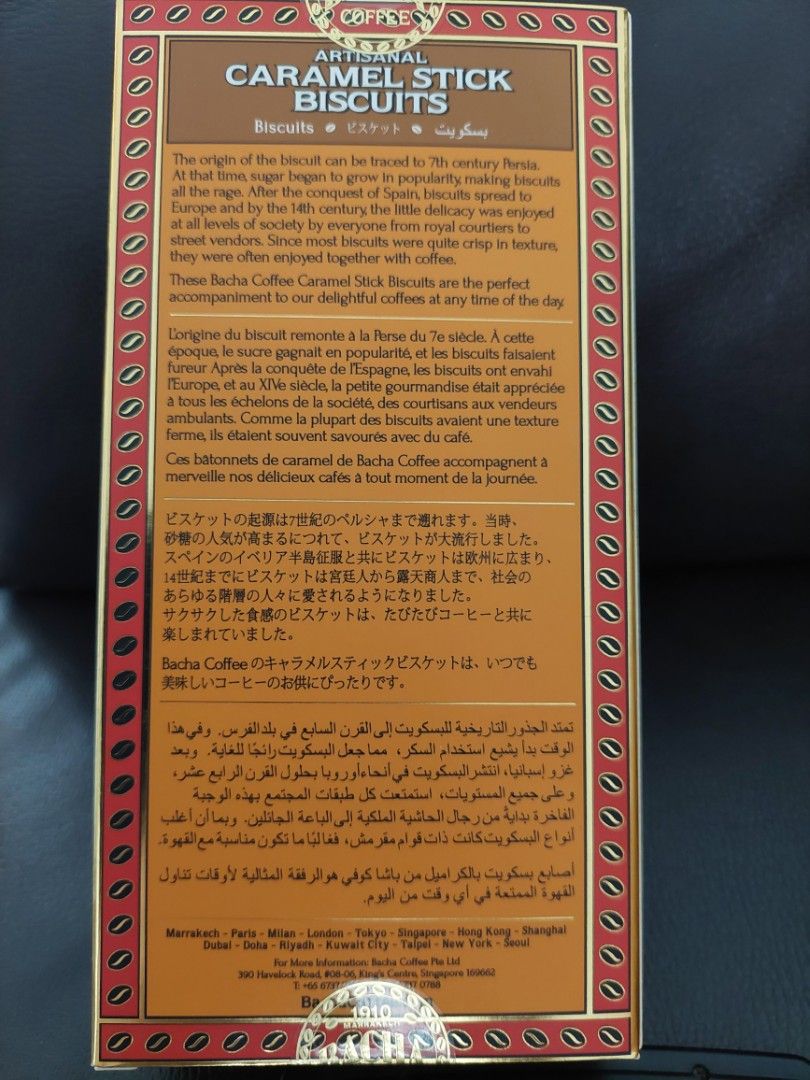 COFFEE
ARTISANAL
CARAMEL STICK
BISCUITS
Biscuits ビスケット بسكويت
The origin of the biscuit can be traced to 7th century Persia.
At that time, sugar began to grow in popularity, making biscuits
all the rage. After the conquest of Spain, biscuits spread to
Europe and by the 14th century, the little delicacy was enjoyed
at all levels of society by everyone from royal courtiers to
street vendors. Since most biscuits were quite crisp in texture,
they were often enjoyed together with coffee.
These Bacha Coffee Caramel Stick Biscuits are the perfect
accompaniment to our delightful coffees at any time of the day.
L'origine du biscuit remonte à la Perse du 7e siècle. À cette
époque, le sucre gagnait en popularité, et les biscuits faisaient
fureur Après la conquête de l'Espagne, les biscuits ont envahi
l'Europe, et au XIVe siècle, la petite gourmandise était appréciée
à tous les échelons de la société, des courtisans aux vendeurs
ambulants. Comme la plupart des biscuits avaient une texture
ferme, ils étaient souvent savourés avec du café.
Ces bâtonnets de caramel de Bacha Coffee accompagnent à
merveille nos délicieux cafés à tout moment de la journée.
ビスケットの起源は7世紀のペルシャまで遡れます。当時、
砂糖の人気が高まるにつれて、ビスケットが大流行しました。
スペインのイベリア半島征服と共にビスケットは欧州に広まり、
14世紀までにビスケットは宮廷人から露天商人まで、社会の
あらゆる階層の人々に愛されるようになりました。
サクサクした食感のビスケットは、たびたびコーヒーと共に
楽しまれていました。
Bacha Coffee のキャラメルスティックビスケットは、いつでも
美味しいコーヒーのお供にぴったりです。
تمتد الجذور التاريخية للبسكويت إلى القرن السابع في بلد الفرس. وفي هذا
الوقت بدأ يشيع استخدام السكر، مما جعل البسكويت رائجًا للغاية. وبعد
غزو إسبانيا، انتشر البسكويت في أنحاء أوروبا بحلول القرن الرابع عشر،
وعلى جميع المستويات، استمتعت كل طبقات المجتمع بهذه الوجبة
الفاخرة بدايةً من رجال الحاشية الملكية إلى الباعة الجائلين. وبما أن أغلب
أنواع البسكويت كانت ذات قوام مقرمش، فغالبًا ما تكون مناسبة مع القهوة.
أصابع بسكويت بالكراميل من باشا كوفي هو الرفقة المثالية لأوقات تناول
القهوة الممتعة في أي وقت من اليوم.
Marrakech - Paris - Milan - London - Tokyo - Singapore - Hong Kong - Shanghai
Dubai - Doha - Riyadh - Kuwait City - Taipei - New York - Seoul
For More Information: Bacha Coffee Pte Ltd
390 Havelock Road, #08-06, King's Centre, Singapore 169662
T: +65 6737 0788
1910
MARRAKECH
BACHA